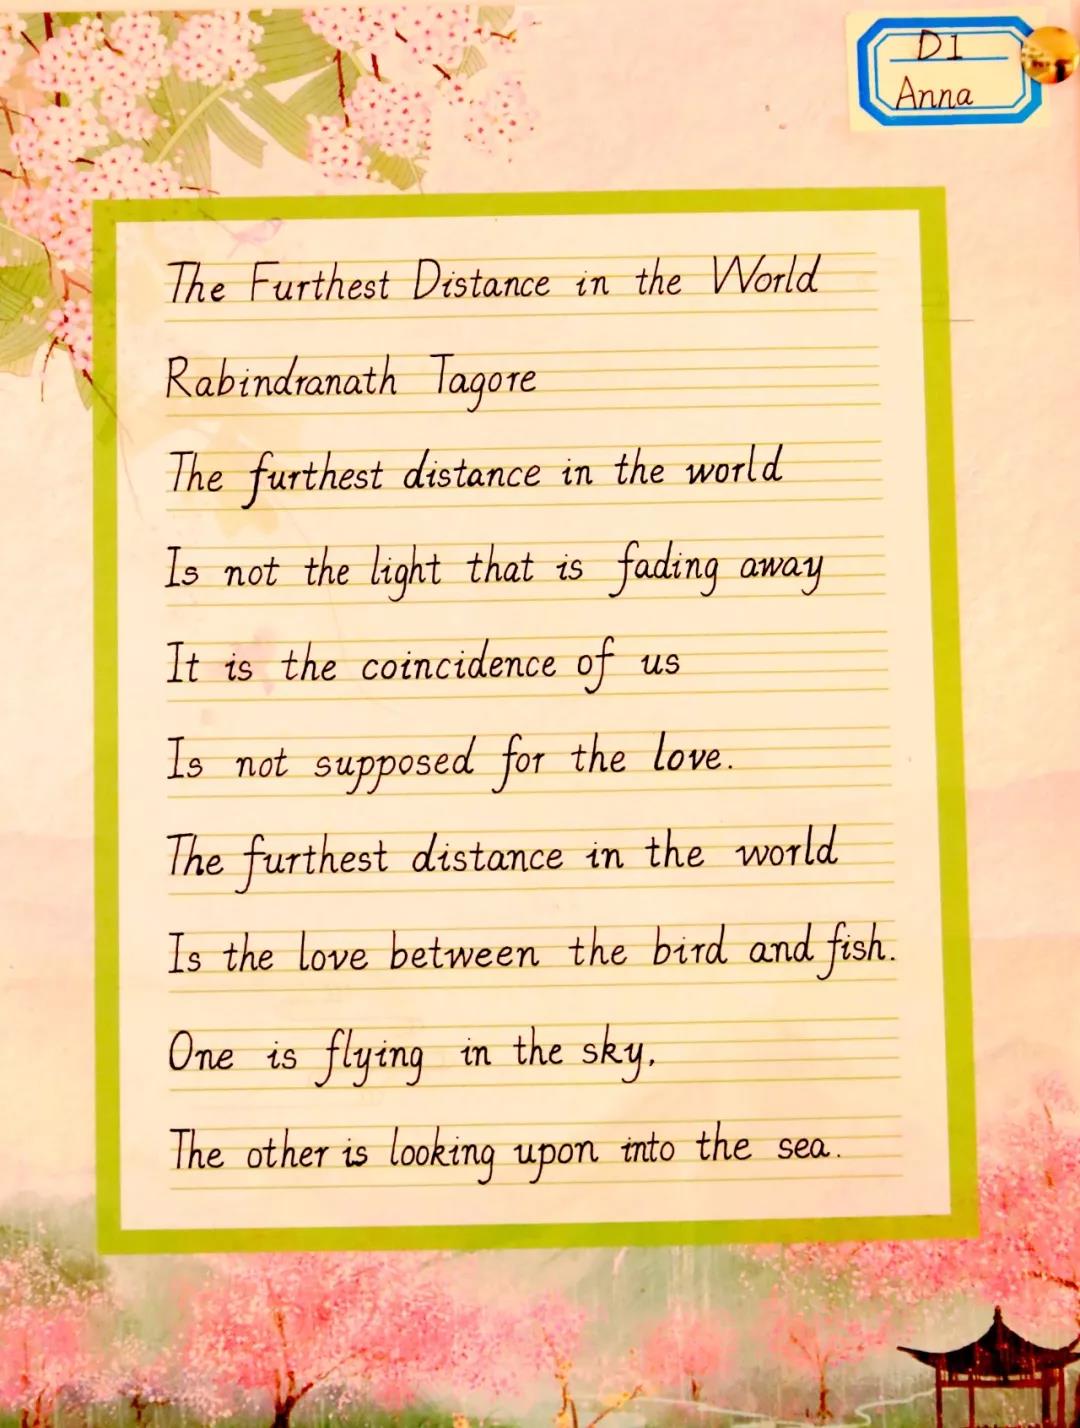 D1
Anna
The Furthest Distance in the World
Rabindranath Tagore
The furthest distance in the world
Is not the light that is fading away
It is the coincidence of us
Is not supposed for the love.
The furthest distance in the world
Is the love between the bird and fish.
One is flying in the sky,
The other is looking upon into the sea.